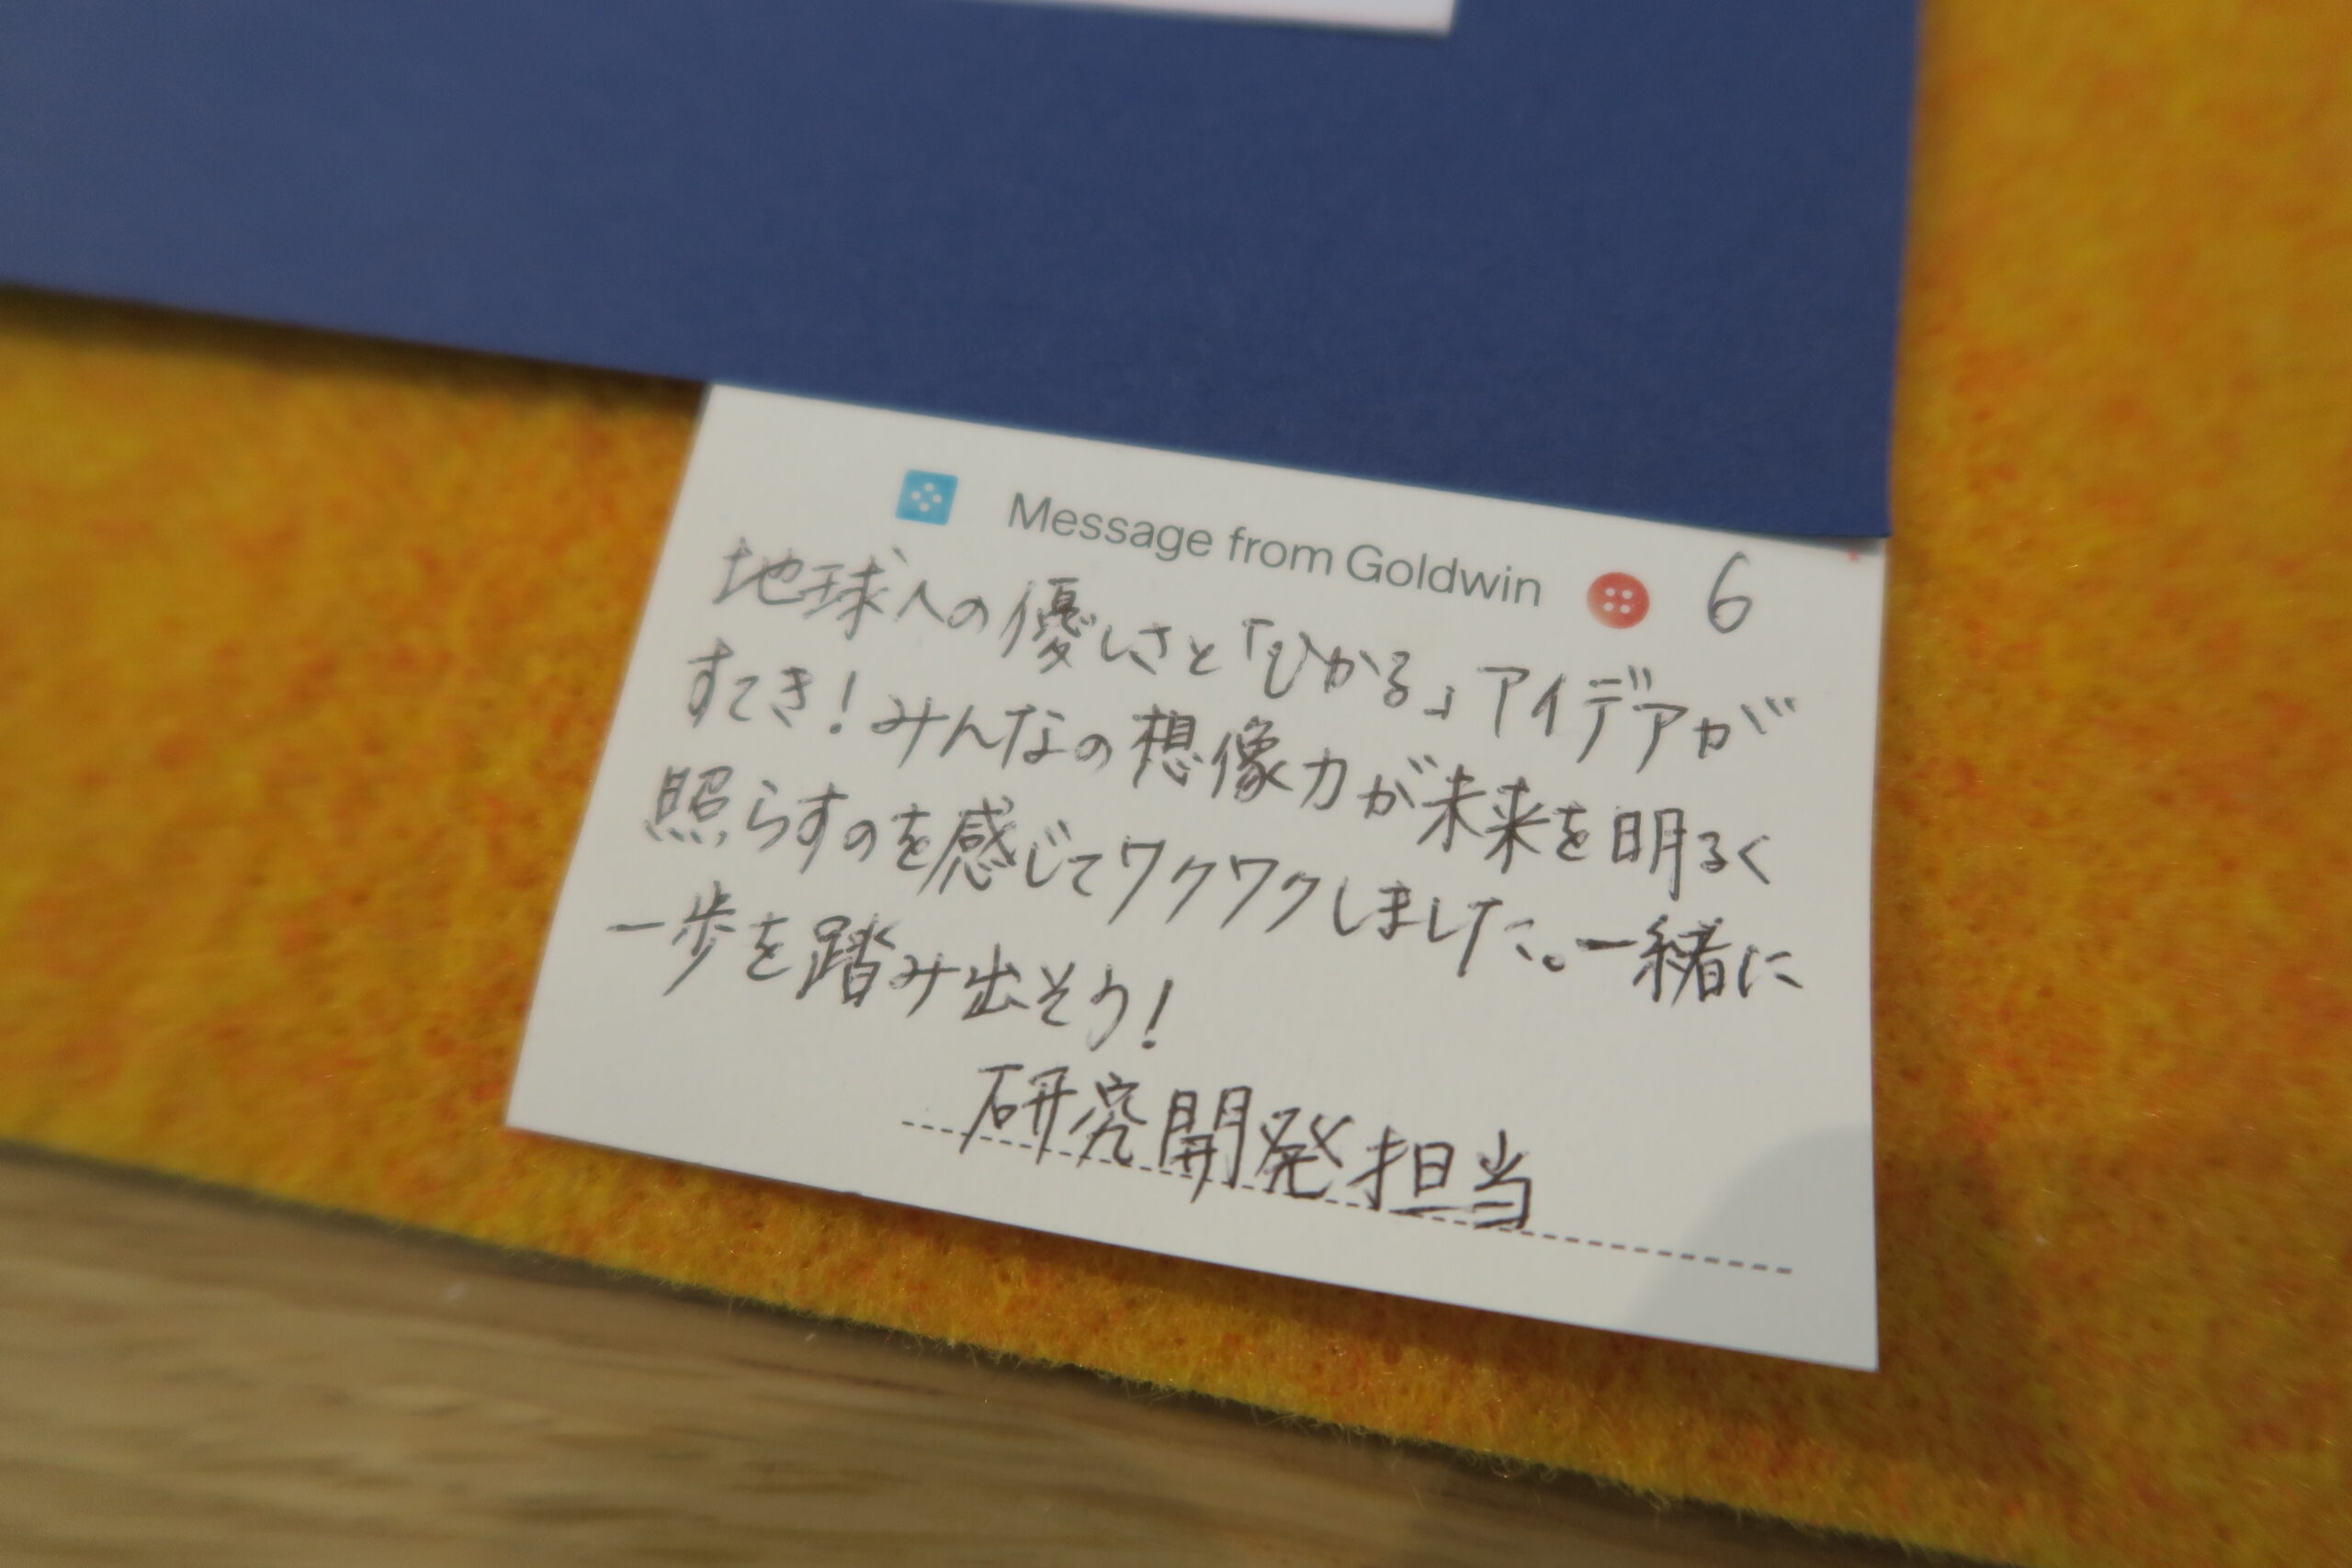 Message from Goldwin 6
地球への優しさと「ひかる」アイデアが
すてき！みんなの想像力が未来を明るく
照らすのを感じてワクワクしました。一緒に
一歩を踏み出そう！
研究開発担当